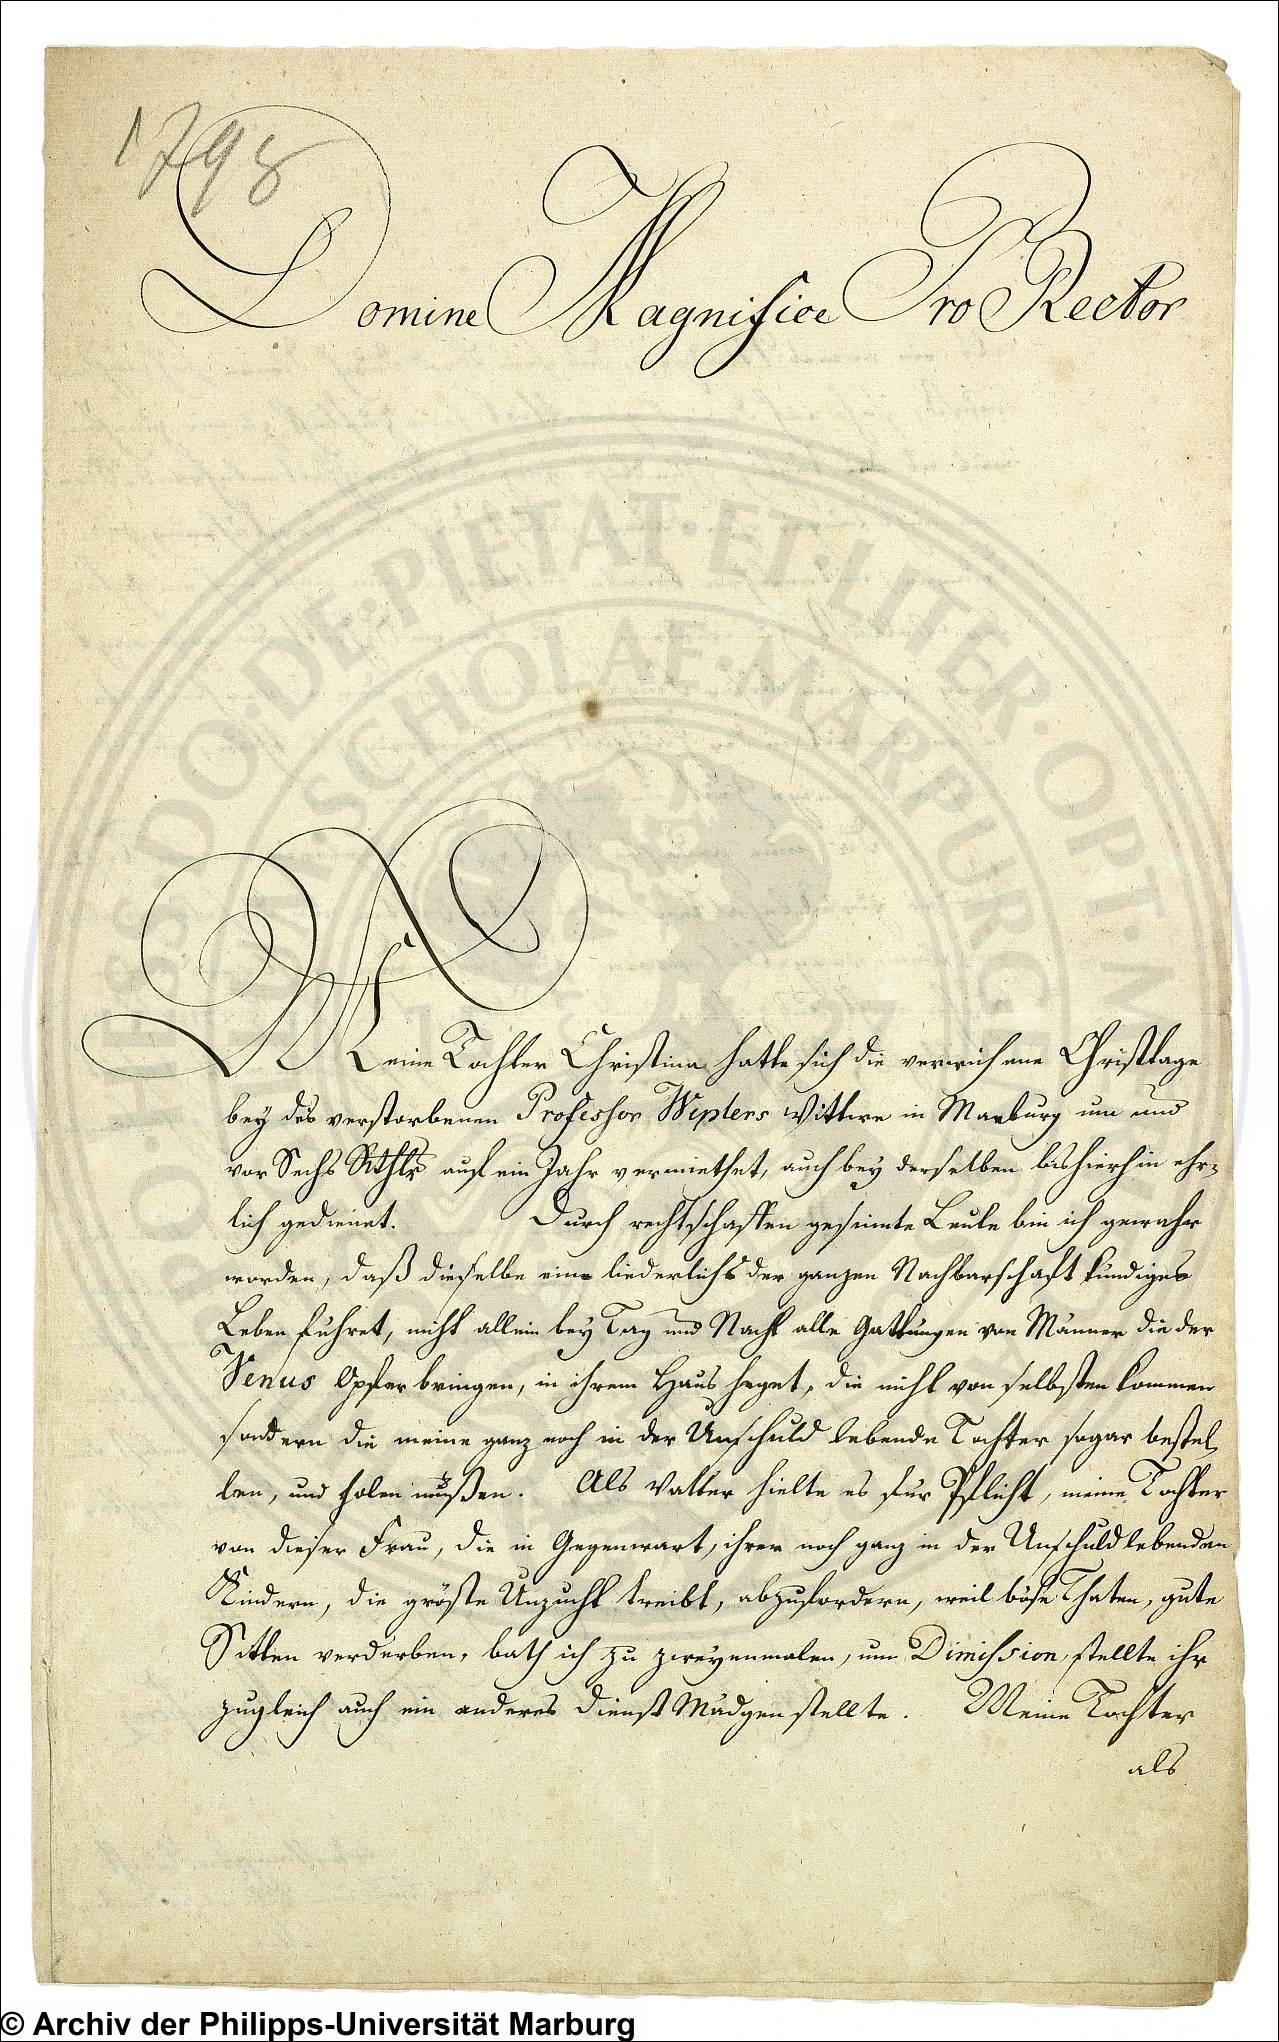 1798
Domine Magnifice Pro Rector
Meine Tochter Christina hatte sich die verwichene Christtage
bey des verstorbenen Professor Wiplers Wittwe in Marburg um und
vor Sechs Rthlr auf ein Jahr vermiethet, auch bey derselben bishierhin ehr-
lich gedienet. Durch rechtschaffen gesinnte Leute bin ich gewahr
worden, daß dieselbe eine liederlichs der ganzen Nachbarschaft kundiges
Leben führet, nicht allein bey Tag und Nacht alle Gattungen von Männer die der
Venus Opfer bringen, in ihrem Haus heget, die nicht von selbsten kommen
sondern die meine ganz noch in der Unschuld lebende Tochter sogar bestel-
len, und holen müßen. Als Vatter hielte es für Pflicht, meine Tochter
von dieser Frau, die in Gegenwart, ihrer noch ganz in der Unschuld lebenden
Kindern, die gröste Unzucht treibt, abzufordern, weil böse Thaten, gute
Sitten verderben, bath ich zu zweyenmalen, um Dimission, stellte ihr
zugleich auch ein anderes Dienst Mädgen stellte. Meine Tochter
als
DO · DE · PIETAT · ET · LITER · OPTI · M
SCHOLAE · MARPURG
© Archiv der Philipps-Universität Marburg